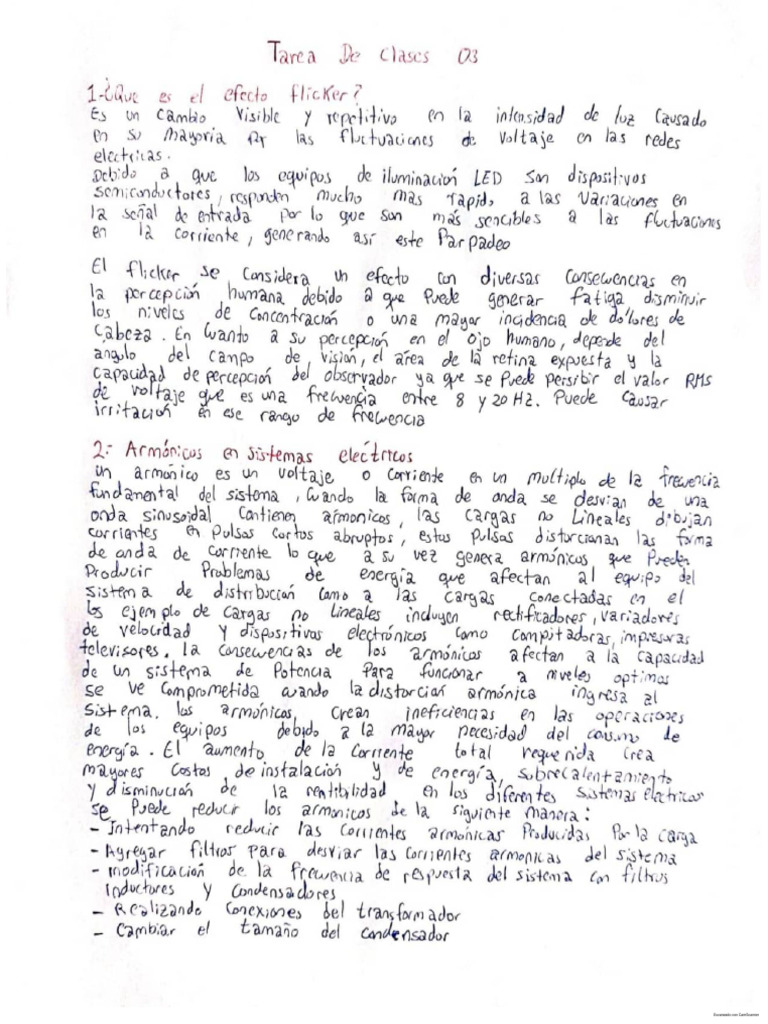 Tarea De Clases 03
1-¿Que es el efecto flicker?
Es un cambio visible y repetitivo en la intensidad de luz causado
en su mayoria por las fluctuaciones de voltaje en las redes
electricas.
Debido a que los equipos de iluminación LED son dispositivos
semiconductores, responden mucho mas rapido, a las variaciones en
la señal de entrada por lo que son más sencibles a las fluctuaciones
en la corriente, generando así este Parpadeo
El flicker se considera un efecto con diversas consecuencias en
la percepción humana debido a que puede generar fatiga disminuir
los niveles de concentración o una mayor incidencia de dolores de
cabeza. En cuanto a su percepción en el ojo humano, depende del
angulo del campo de visión, el área de la retina expuesta y la
capacidad de percepción del observador ya que se puede persibir el valor RMS
de voltaje que es una frecuencia entre 8 y 20 Hz. Puede causar
irritación en ese rango de frecuencia
2- Armónicos en sistemas electricos
un armónico es un voltaje o corriente en un multiplo de la frecuencia
fundamental del sistema, cuando la forma de onda se desvian de una
onda sinusoidal contienen armonicos, las cargas no lineales dibujan
corrientes en pulsos cortos abruptos, estos pulsos distorcionan las forma
de onda de corriente lo que a su vez genera armónicos que pueden
Producir Problemas de energía que afectan al equipo del
sistema de distribución como a las cargas conectadas en el
los ejemplo de cargas no lineales incluyen rectificadores, variadores
de velocidad y dispositivos electrónicos como compitadoras, impresoras
televisores. la consecuencias de los armónicos afectan a la capacidad
de un sistema de Potencia Para funcionar a niveles optimos
se ve comprometida cuando la distorcian armónica ingresa al
sistema. los armónicos crean ineficiencias en las operaciones
de los equipos debido a la mayor necesidad del consumo de
energía. El aumento de la corriente total requerida crea
mayores costos de instalación y de energía, sobrecalentamiento
y disminución de la rentibilidad en los diferentes sistemas electricos
se Puede reducir los armonicos de la siguiente manera:
- Intentando reducir las corrientes armonicas Producidas Por la carga
- Agregar filtros para desviar las corrientes armonicas del sistema
- modificación de la frecuencia de respuesta del sistema con filtros
inductores y condensadores
- Realizando conexiones del transformador
- Cambiar el tamaño del condensador
Escaneado con CamScanner